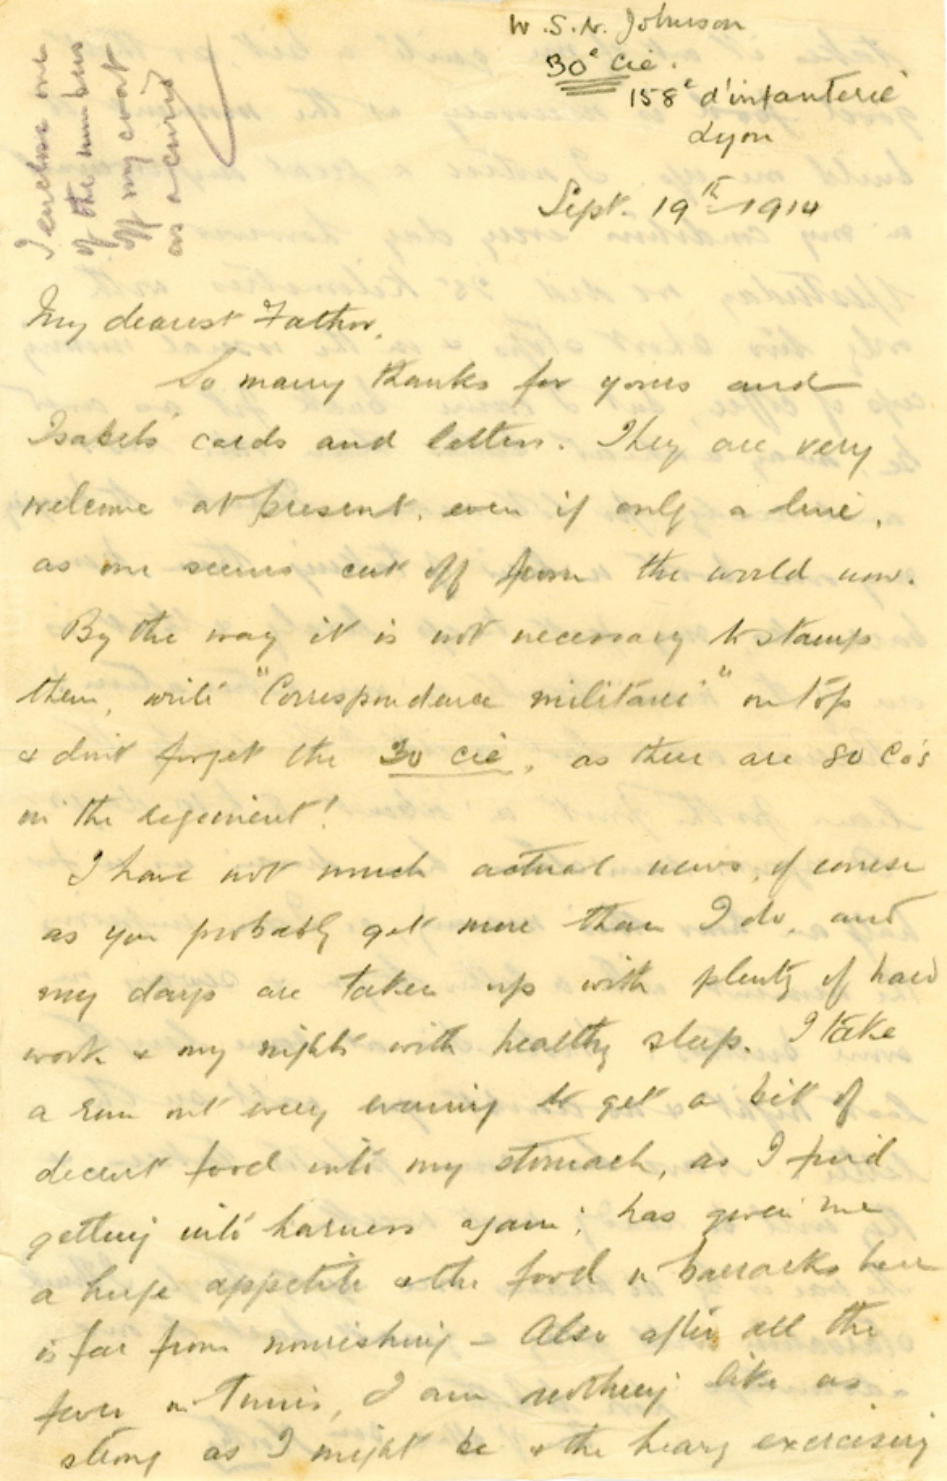 W. S. N. Johnson
30e Cie.
158e d'infanterie
Lyon
Sept. 19th 1914
I enclose one
of the numbers
off my coat
as a curio
My dearest Father,
So many thanks for yours and
Isabel's cards and letters. They are very
welcome at present, even if only a line,
as one seems cut off from the world now.
By the way it is not necessary to stamp
them, write "Correspondence militaire" on top
& don't forget the 30 cie, as there are 80 Co's
in the regiment!
I have not much actual news, of course
as you probably get more than I do, and
my days are taken up with plenty of hard
work & my nights with healthy sleep. I take
a run out every evening to get a bit of
decent food into my stomach, as I find
getting into harness again; has given me
a huge appetite & the food in barracks here
is far from nourishing - Also after all the
fever in Tunis, I am nothing like as
strong as I might be & the heavy exercising